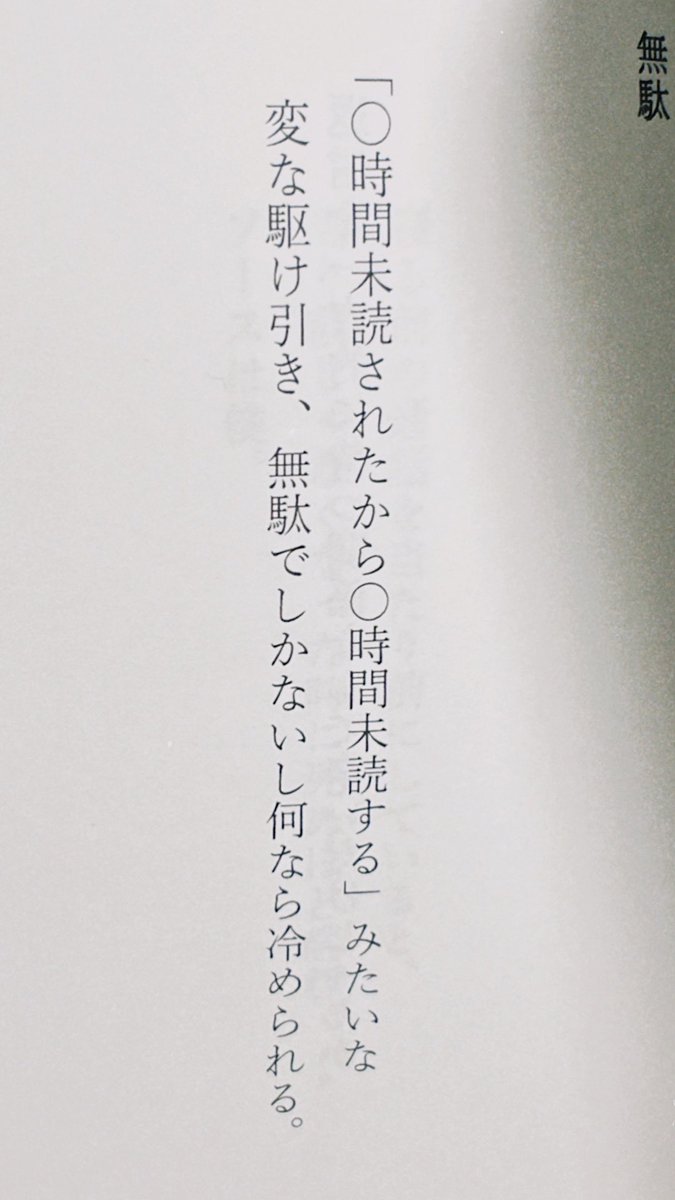 無駄
「〇時間未読されたから〇時間未読する」みたいな
変な駆け引き、無駄でしかないし何なら冷められる。